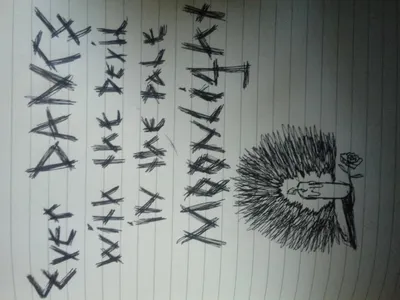 Ever DANCE
with the Devil
in the PALE
MOONLIGHT